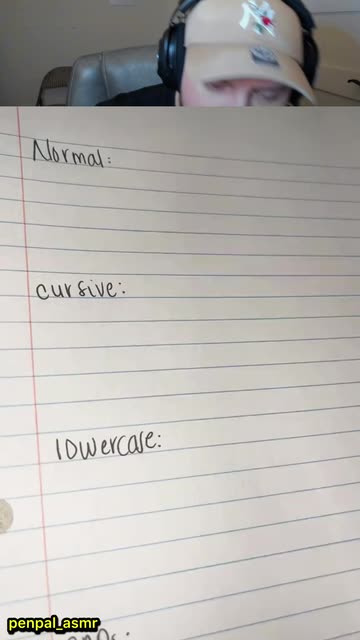 Normal:
cursive:
lowercase:
penpal_asmr